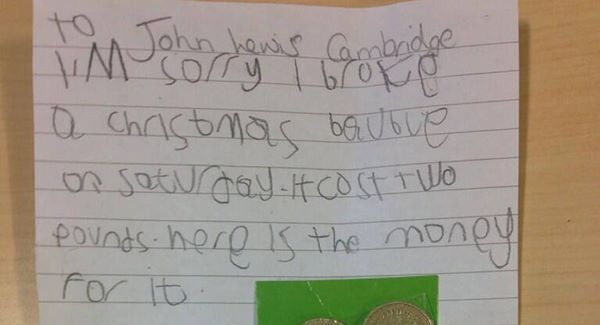 to John Lewis Cambridge
I'M sorry I broke
a christmas bauble
on saturday. It cost two
pounds. here is the money
for it.